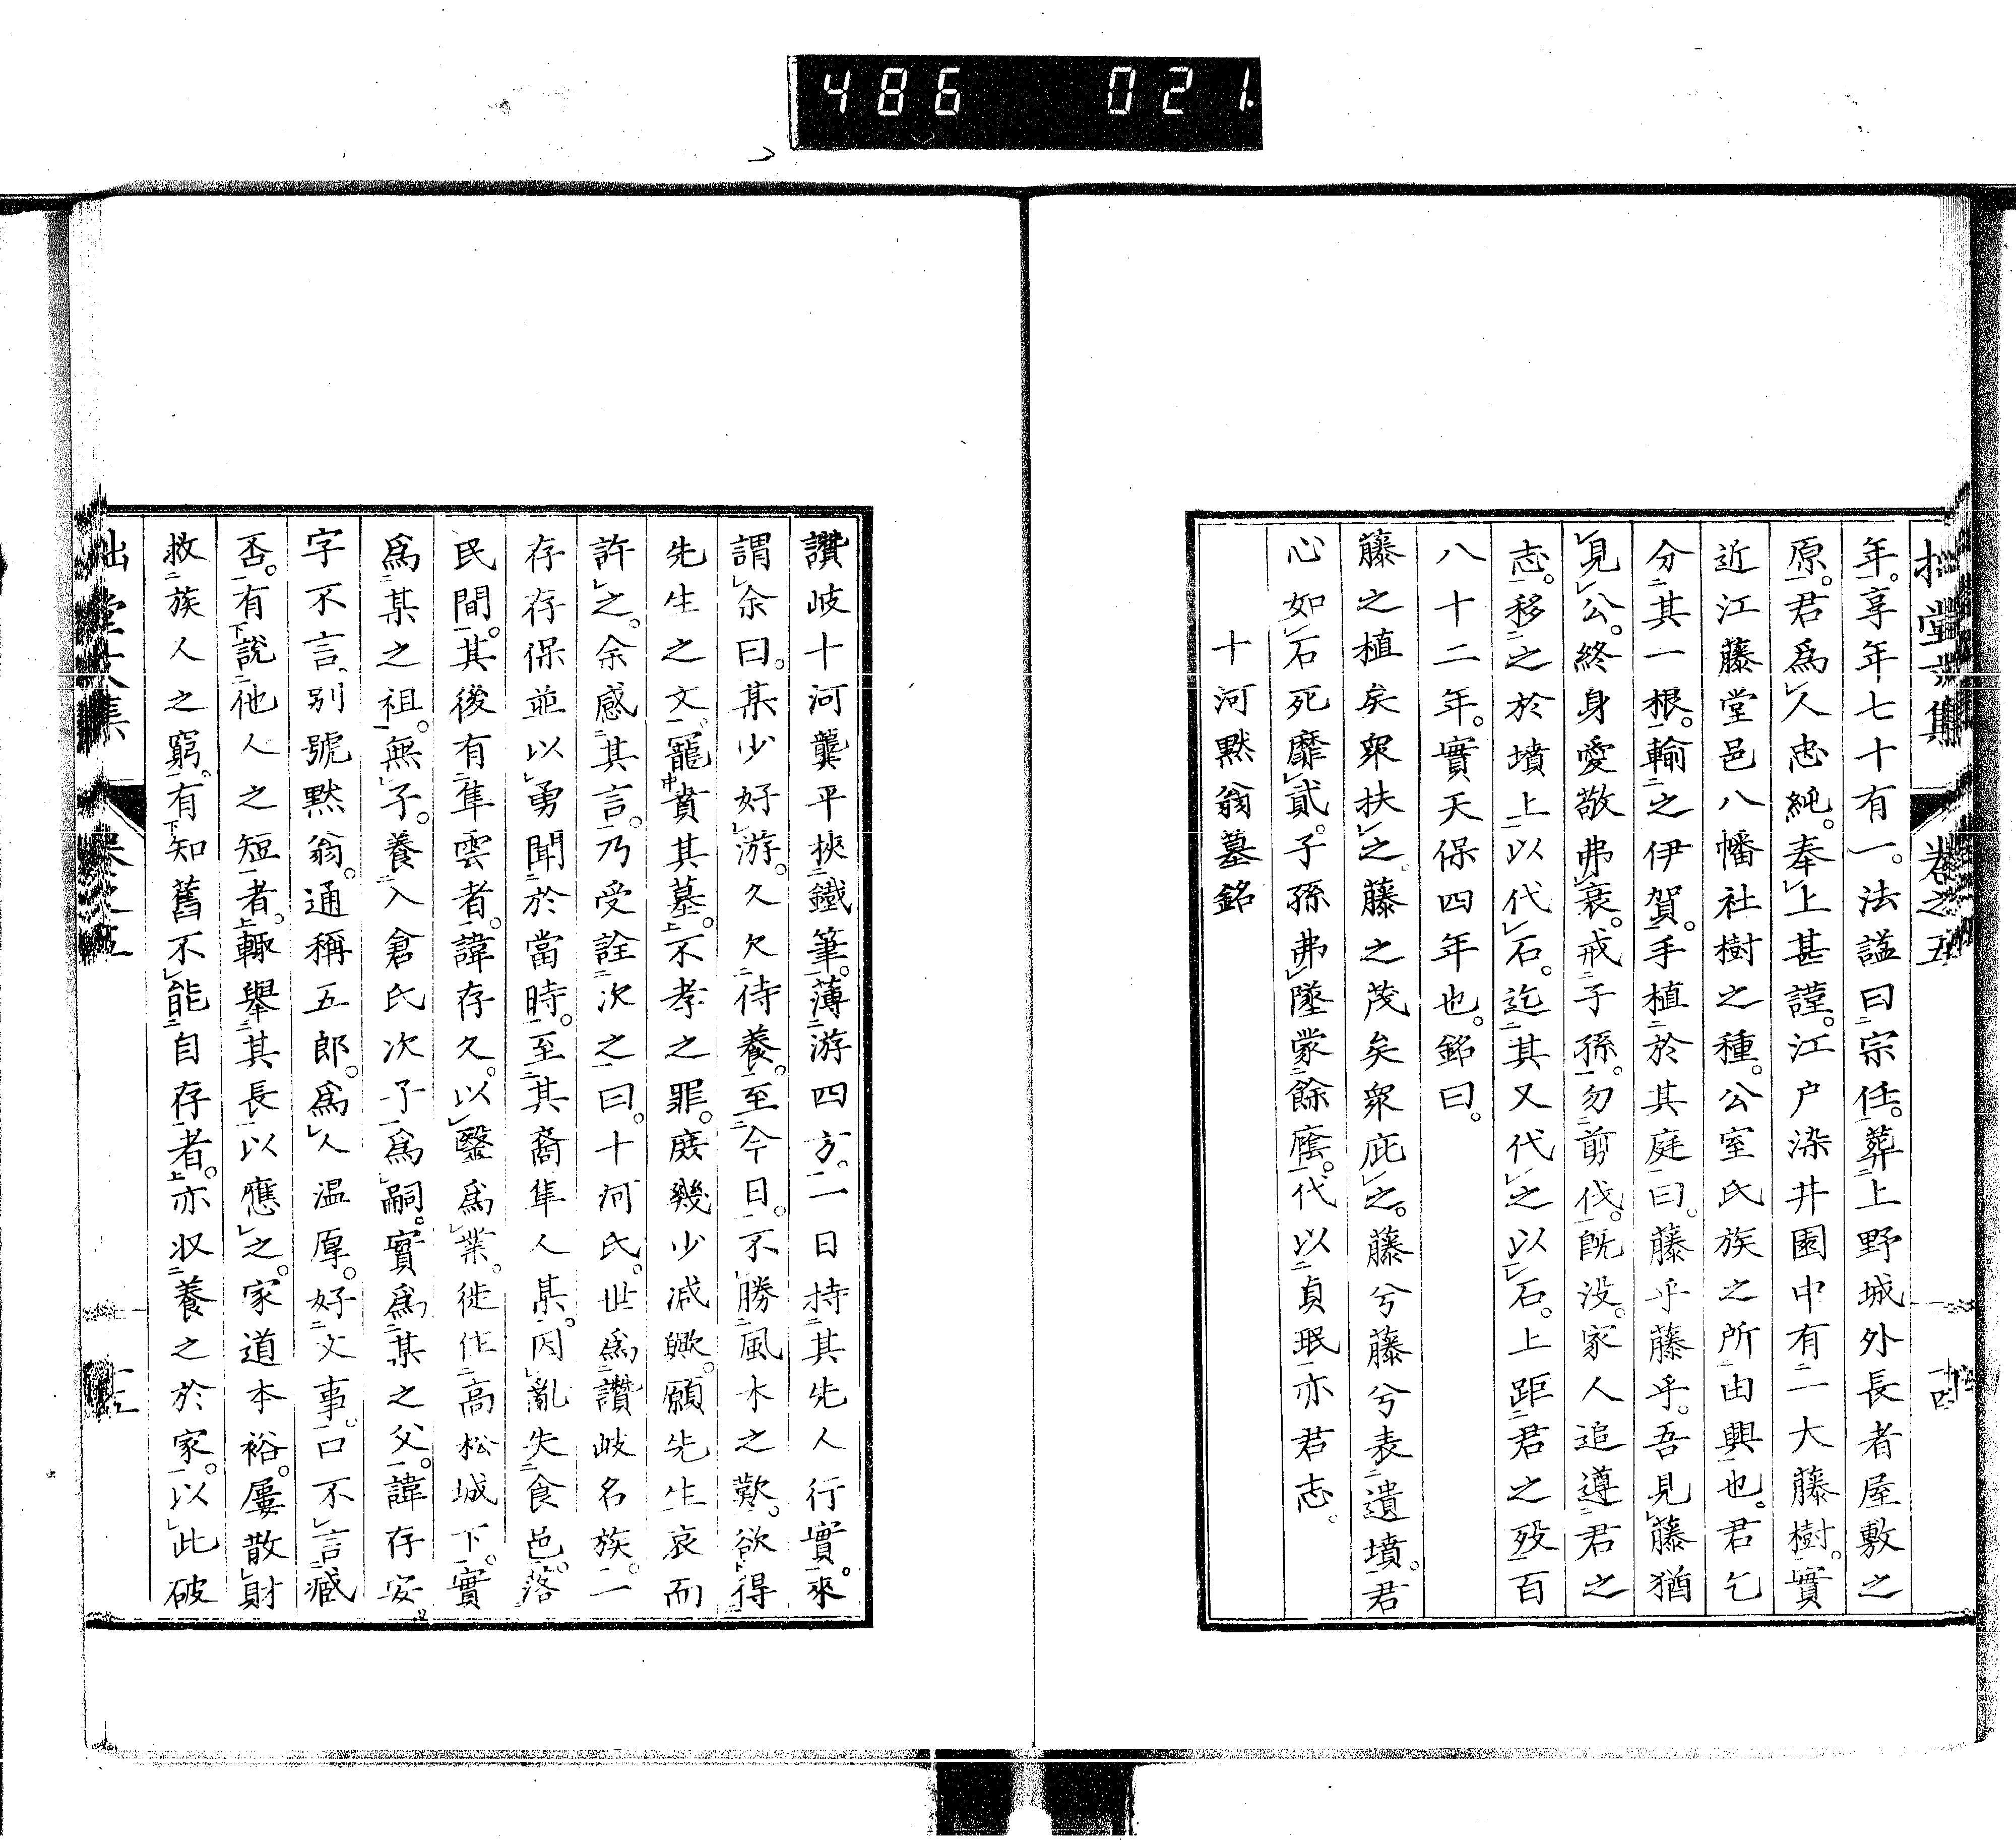 486 021
年。享年七十有一。法諡曰宗任。葬上野城外長者屋敷之
原。君爲人忠純。奉上甚謹。江戸染井園中有二大藤樹。實
近江藤堂邑八幡社樹之種。公室氏族之所由興也。君乞
分其一根。輸之伊賀。手植於其庭曰。藤乎藤乎。吾見藤猶
見公。終身愛敬弗衰。戒子孫勿剪伐。既没。家人追遵君之
志。移之於墳上以代石。迄其又代之以石。上距君之歿百
八十二年。實天保四年也。銘曰。
藤之植矣衆扶之。藤之茂矣衆庇之。藤兮藤兮表遺墳。君
心如石死靡貳。子孫弗墜蒙餘廕。代以貞珉亦君志。
十河默翁墓銘
讚岐十河龔平挾鐵筆。薄游四方。一日持其先人行實。來
謂余曰。某少好游。久欠待養。至今日。不勝風木之歎。欲得
先生之文。寵賁其墓。不孝之罪。庶幾少減歟。願先生哀而
許之。余感其言。乃受詮次之曰。十河氏。世爲讚岐名族。二
存存保並以勇聞於當時。至其裔隼人某。因亂失食邑。落
民間。其後有隼雲者。諱存久。以鑿爲業。徙住高松城下。實
爲某之祖。無子。養入倉氏次子爲嗣。實爲某之父。諱存安。
字不言、別號默翁。通稱五郎。爲人温厚。好文事。口不言臧
否。有說他人之短者。輙舉其長以應之。家道本裕。屢散財
救族人之窮。有知舊不能自存者。亦收養之於家。以此破
拙堂文集 卷之五 十四